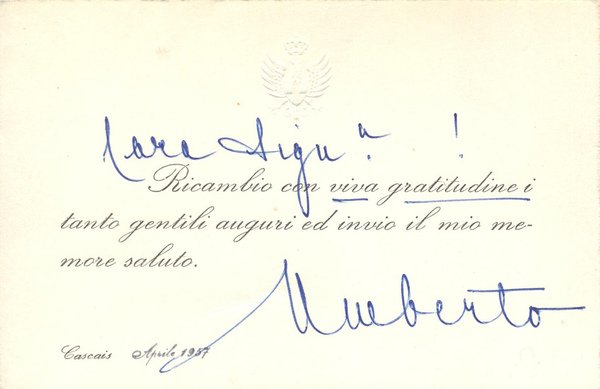 Cara Sigu.ª !
Ricambio con viva gratitudine i
tanto gentili auguri ed invio il mio me-
more saluto.
Umberto
Cascais Aprile 1957